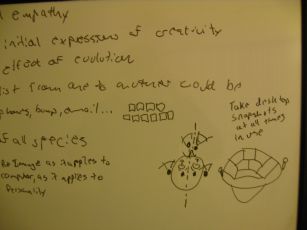 empathy
initial expressions of creativity
effect of evolution
list from one to another could be
email...
of all species
Image as it applies to
computer, as it applies to
Personality
Take desktop
snapshots
at all times
in use